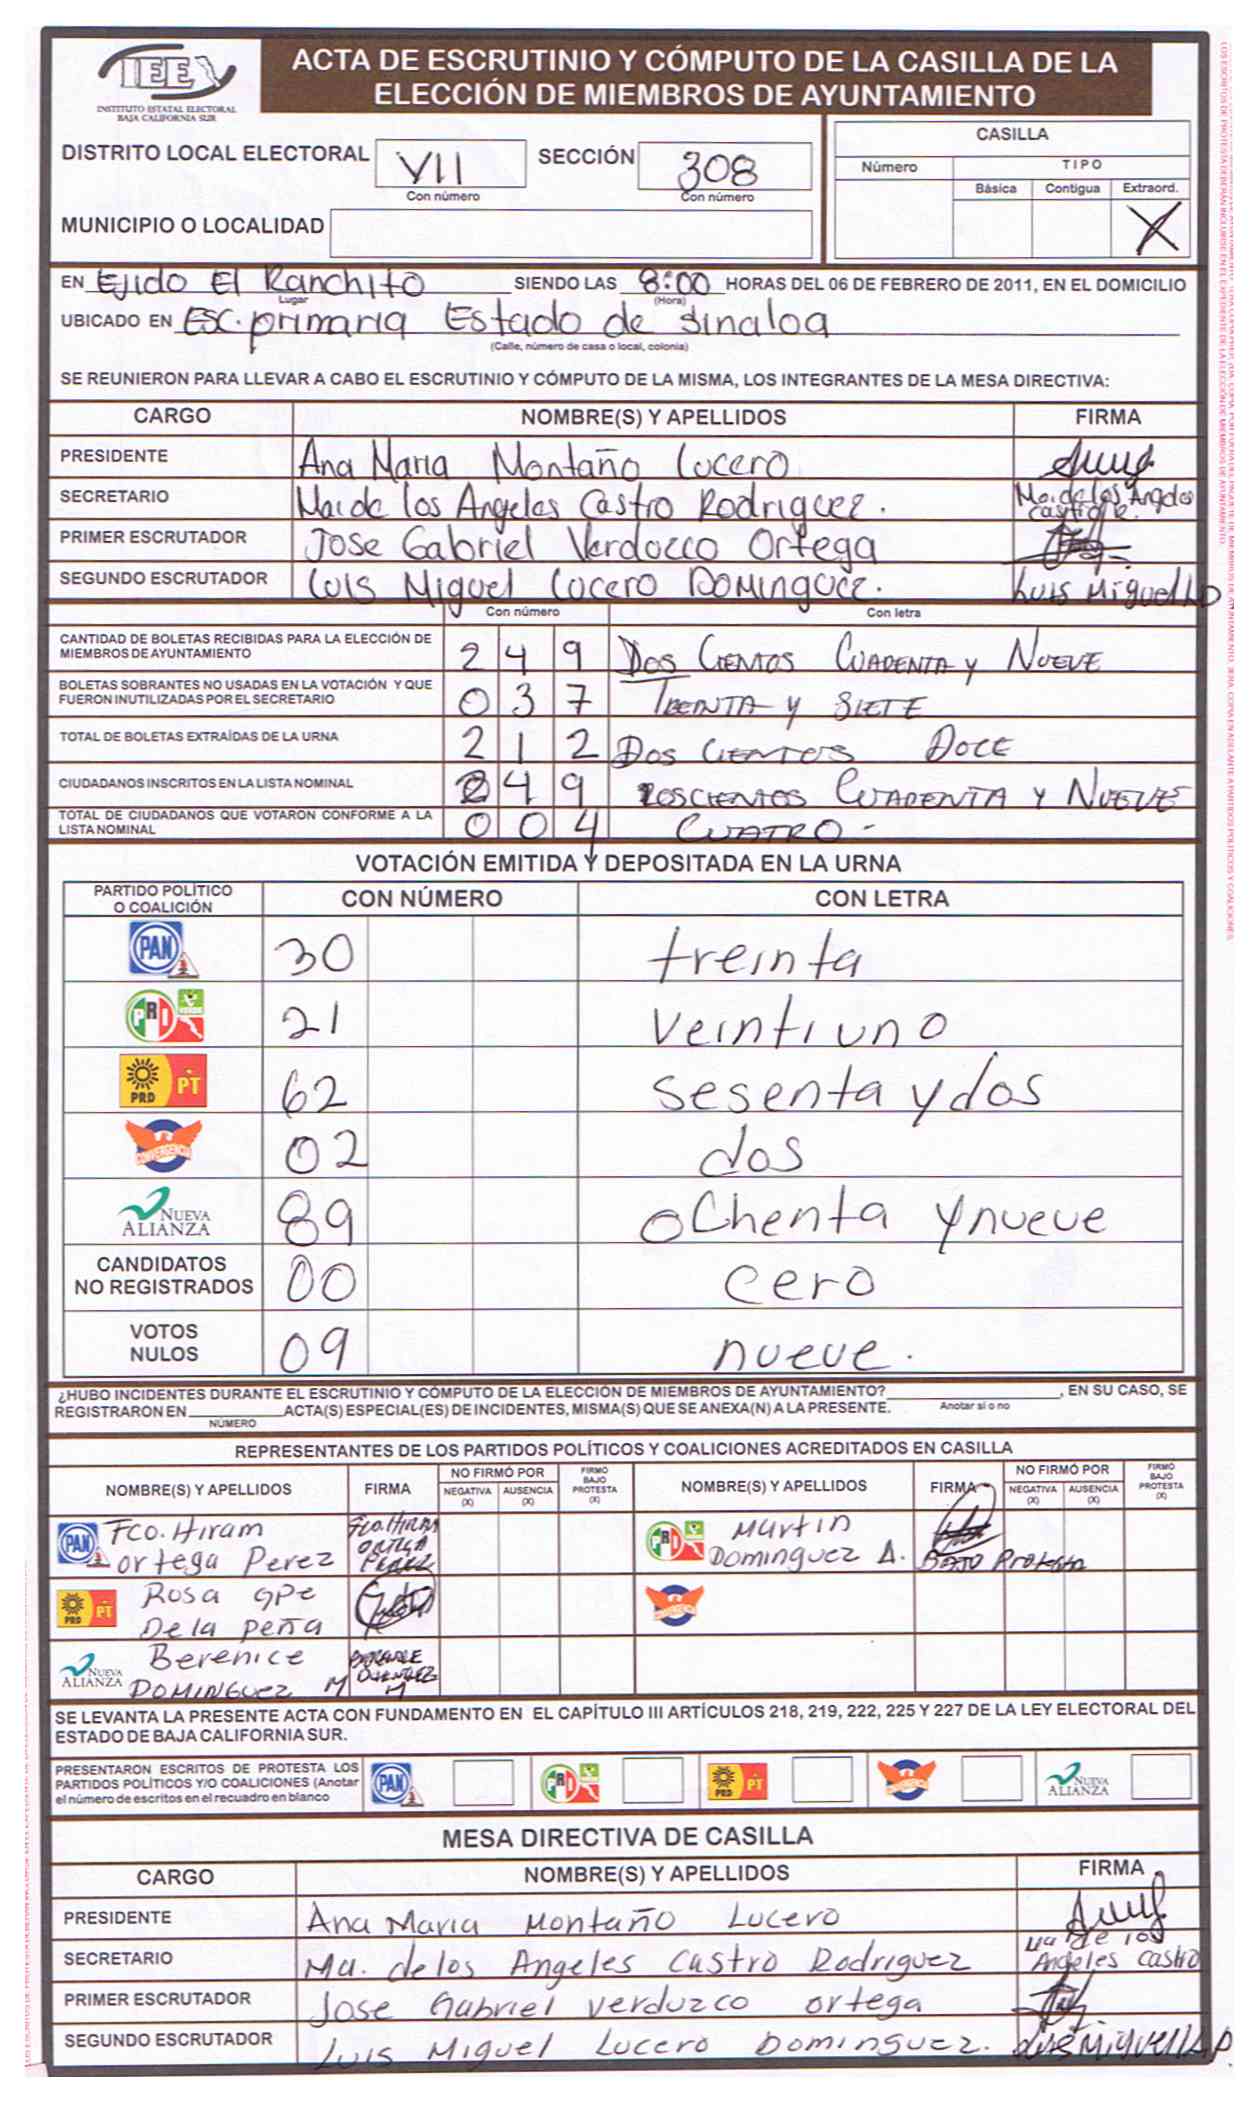 IEE
INSTITUTO ESTATAL ELECTORAL
BAJA CALIFORNIA SUR
ACTA DE ESCRUTINIO Y CÓMPUTO DE LA CASILLA DE LA
ELECCIÓN DE MIEMBROS DE AYUNTAMIENTO
DISTRITO LOCAL ELECTORAL VII SECCIÓN 308
Con número Con número
MUNICIPIO O LOCALIDAD
CASILLA
Número TIPO
Básica Contigua Extraord.
X
EN Ejido El Ranchito SIENDO LAS 8:00 HORAS DEL 06 DE FEBRERO DE 2011, EN EL DOMICILIO
Lugar (Hora)
UBICADO EN ESC. primaria Estado de Sinaloa
(Calle, número de casa o local, colonia)
SE REUNIERON PARA LLEVAR A CABO EL ESCRUTINIO Y CÓMPUTO DE LA MISMA, LOS INTEGRANTES DE LA MESA DIRECTIVA:
CARGO NOMBRE(S) Y APELLIDOS FIRMA
PRESIDENTE Ana Maria Montaño Lucero
SECRETARIO Ma. de los Angeles Castro Rodriguez. Ma. de los Angeles Castro R.
PRIMER ESCRUTADOR Jose Gabriel Verduzco Ortega
SEGUNDO ESCRUTADOR Luis Miguel Lucero Dominguez. Luis Miguel L D
Con número Con letra
CANTIDAD DE BOLETAS RECIBIDAS PARA LA ELECCIÓN DE
MIEMBROS DE AYUNTAMIENTO 2 4 9 DOS CIENTOS CUARENTA Y NUEVE
BOLETAS SOBRANTES NO USADAS EN LA VOTACIÓN Y QUE
FUERON INUTILIZADAS POR EL SECRETARIO 0 3 7 TREINTA Y SIETE
TOTAL DE BOLETAS EXTRAÍDAS DE LA URNA 2 1 2 DOS CIENTOS DOCE
CIUDADANOS INSCRITOS EN LA LISTA NOMINAL 2 4 9 DOSCIENTOS CUARENTA Y NUEVE
TOTAL DE CIUDADANOS QUE VOTARON CONFORME A LA
LISTA NOMINAL 0 0 4 CUATRO -
VOTACIÓN EMITIDA Y DEPOSITADA EN LA URNA
PARTIDO POLÍTICO
O COALICIÓN CON NÚMERO CON LETRA
PAN 30 treinta
PRD VERDE 21 veintiuno
PRD PT 62 sesenta y dos
CONVERGENCIA 02 dos
NUEVA ALIANZA 89 ochenta y nueve
CANDIDATOS
NO REGISTRADOS 00 cero
VOTOS
NULOS 09 nueve.
¿HUBO INCIDENTES DURANTE EL ESCRUTINIO Y CÓMPUTO DE LA ELECCIÓN DE MIEMBROS DE AYUNTAMIENTO? , EN SU CASO, SE
REGISTRARON EN ACTA(S) ESPECIAL(ES) DE INCIDENTES, MISMA(S) QUE SE ANEXA(N) A LA PRESENTE. Anotar si o no
NÚMERO
REPRESENTANTES DE LOS PARTIDOS POLÍTICOS Y COALICIONES ACREDITADOS EN CASILLA
NOMBRE(S) Y APELLIDOS FIRMA NO FIRMÓ POR NEGATIVA (X) AUSENCIA (X) FIRMÓ BAJO PROTESTA (X) NOMBRE(S) Y APELLIDOS FIRMA NO FIRMÓ POR NEGATIVA (X) AUSENCIA (X) FIRMÓ BAJO PROTESTA (X)
PAN Fco. Hiram Ortega Perez FCO. HIRAM ORTEGA PEREZ
PRD VERDE Martin Dominguez A. BAJO Protesta
PRD PT Rosa Gpe De la Peña
CONVERGENCIA
NUEVA ALIANZA Berenice DOMINGUEZ M BERENICE DOMINGUEZ M
SE LEVANTA LA PRESENTE ACTA CON FUNDAMENTO EN EL CAPÍTULO III ARTÍCULOS 218, 219, 222, 225 Y 227 DE LA LEY ELECTORAL DEL
ESTADO DE BAJA CALIFORNIA SUR.
PRESENTARON ESCRITOS DE PROTESTA LOS
PARTIDOS POLÍTICOS Y/O COALICIONES (Anotar
el número de escritos en el recuadro en blanco
PAN PRD VERDE PRD PT CONVERGENCIA NUEVA ALIANZA
MESA DIRECTIVA DE CASILLA
CARGO NOMBRE(S) Y APELLIDOS FIRMA
PRESIDENTE Ana Maria Montaño Lucero
SECRETARIO Ma. de los Angeles Castro Rodriguez Ma de los Angeles Castro
PRIMER ESCRUTADOR Jose Gabriel Verduzco Ortega
SEGUNDO ESCRUTADOR Luis Miguel Lucero Dominguez. Luis Miguel L D